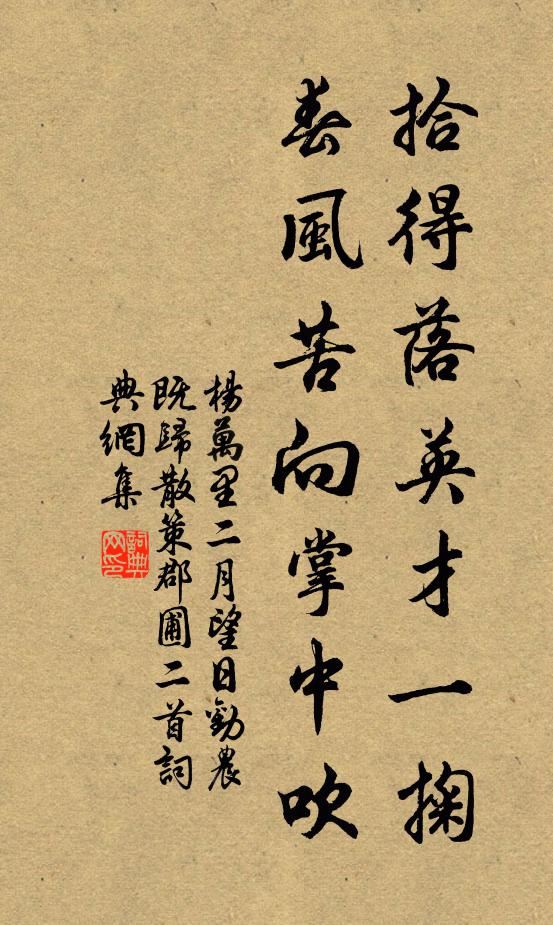 拾得落英才一掬
春風苦向掌中吹
楊萬里二月望日勸農
既歸散策郡圃二首詞
典網集
詞典
网印